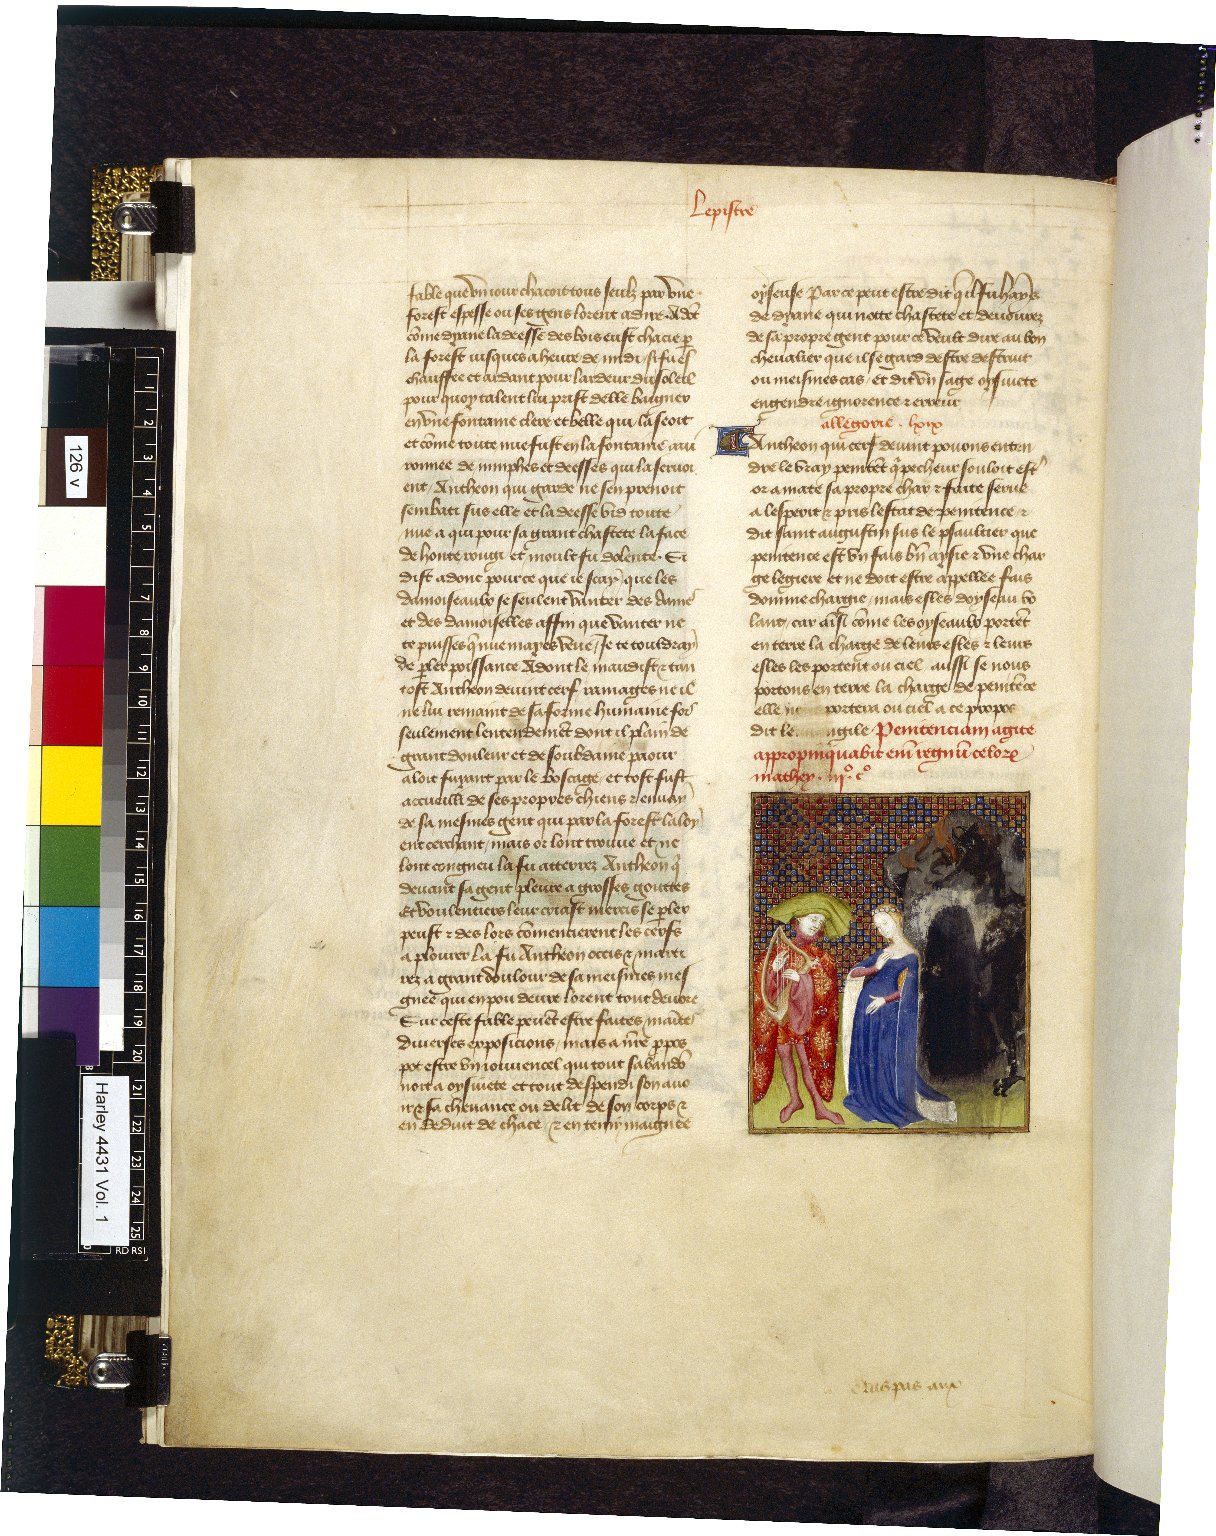 Lepistre
fable que vn iour chacoit tous seulz par vne
forest espesse ou ses gens lorent adire Adõt
cõme dyane la deesse des bois eust chacie p
la forest iusques a heure de midi si fu es
chauffee et ardant pour lardeur du soleil
pour quoy talent lui prist delle baigner
en vne fontaine clere et belle qui la seoit
et cõme toute nue fust en la fontaine aui
ronnee de nimphes et deesses qui la seruoi
ent / Antheon qui garde ne sen prenoit
sembati sus elle et la deesse vid toute
nue a qui pour sa grant chastete la face
de honte rougi et moult fu dolente. Et
dist adonc pour ce que ie scay que les
damoiseaulx se seulent vanter des dames
et des damoiselles affin que vanter ne
te puisses q̃ nue mayes veue / Je te touldray
de pler poissance Adont le maudist & tan
tost Antheon deuint cerf ramages ne il
ne lui remaint de sa forme humaine fors
seulement lentendemẽt dont il plain de
grant douleur et de soubdaine paour
aloit fuyant par le boscage / et tost fust
accueilli de ses propres chiens & enuay
de sa mesmes gent qui par la forest laloy
ent cerchant / mais or lont trouue et ne
lont congneu la fu atterrez Antheon q̃
deuant sa gent pleure a grosses gouttes
Et voulentiers leur criast mercis se pler
peust & des lors cõmencierent les cerfs
a plourer La fu Antheon occis & marti
rez a grant doulour de sa meismes mes
gnee qui en pou deure lorent tout deuore
Sur ceste fable peuẽt estre faites maĩtes
diuerses exposicions / mais a nr̃e ppos
pot estre vn iouuencel qui tout sabandõ
noit a oysiuete et tout despendi son auo
ir & sa cheuance ou delit de son corps &
en deduit de chace / & en tenir maignee
oyseuse Par ce peut estre dit q̃ il fu hays
de dyane qui notte chastete et deuourez
de sa propre gent pour ce veult dire au bon
cheualier que il se gard destre destruit
ou meismes cas / Et dit vn sage oysiuete
engendre ignorence & erreur
allegorie . lxix
Antheon qui cerf deuint pouons enten
dre le vray penitẽt q̃ pecheur souloit estr̃
or a mate sa propre char & faite serue
a lesperit & pris lestat de penitence &
dit saint augustin sus le psaultier que
penitence est vn fais bñ aysie & vne char
ge legiere et ne doit estre appellee fais
domme chargie / mais esles doyseau vo
lant / car aĩsi cõme les oyseaulx portẽt
en terre la charge de leurs esles & leurs
esles les portent ou ciel / aussi se nous
portons en terre la charge de penitẽce
elle portera ou ciel a ce propos
dit le Penitenciam agite
appropinquabit eni regnũ celorx̃
mathey . iij.º cº
pas aux
126 v
Harley 4431 Vol. 1
1
2
3
4
5
7
8
9
10
11
12
13
14
15
16
17
18
19
20
21
22
23
24
25
RD RSI